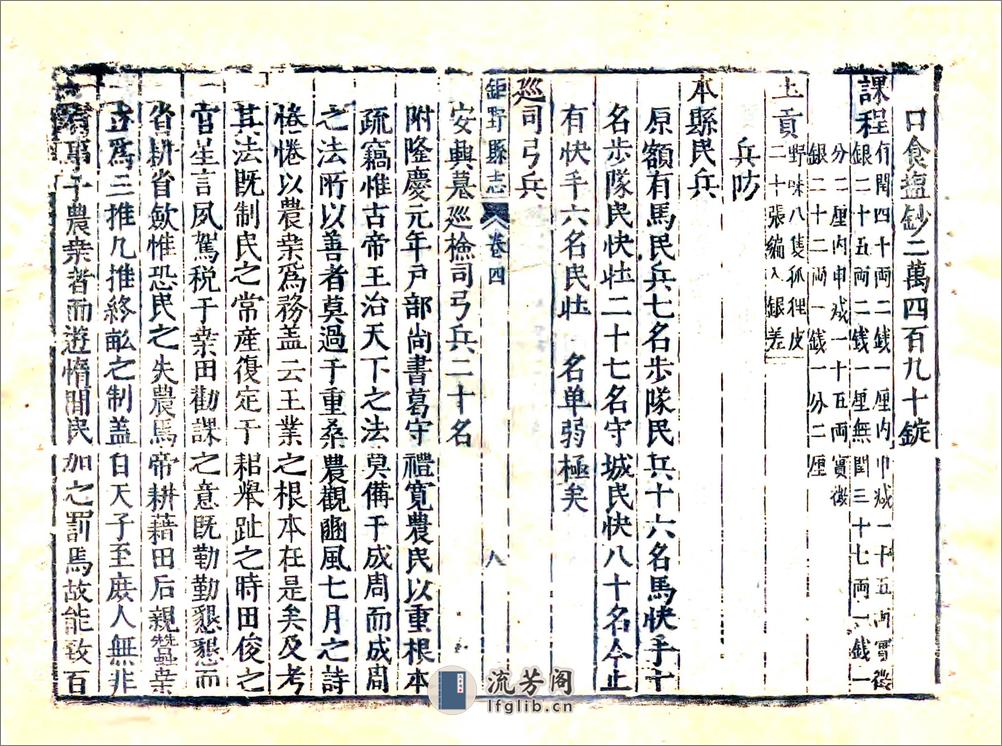 口食塩鈔二萬四百九十錠
課程有閏四十両二銭一厘内申减一十五両實徵
銀二十五両二銭一厘無閏三十七両一銭一
分二厘内申减一十五両實徵
銀二十二両一銭一分二厘
上貢野味八隻狐狸皮
二十張編入銀差
兵防
本縣民兵
原額有馬民兵七名步隊民兵十六名馬快手十
名步隊民快壮二十七名守城民快八十名今止
有快手六名民壮　名单弱極矣
巡司弓兵
鉅野縣志　卷四　八
安興墓巡檢司弓兵二十名
附隆慶元年戸部尚書葛守禮寛農民以重根本
疏竊惟古帝王治天下之法莫備于成周而成周
之法所以善者莫過于重桑農觀豳風七月之詩
惓惓以農業爲務盖云王業之根本在是矣及考
其法既制民之常産復定于耜舉趾之時田俊之
官星言夙駕税于桒田勸課之意既勤勤懇懇而
省耕省歛惟恐民之失農焉帝耕藉田后親蠶桒
出爲三推九推終畝之制盖自天子至庻人無非
事子農桒者而遊惰閒民加之罰焉故能致百
流芳阁
lfglib.cn